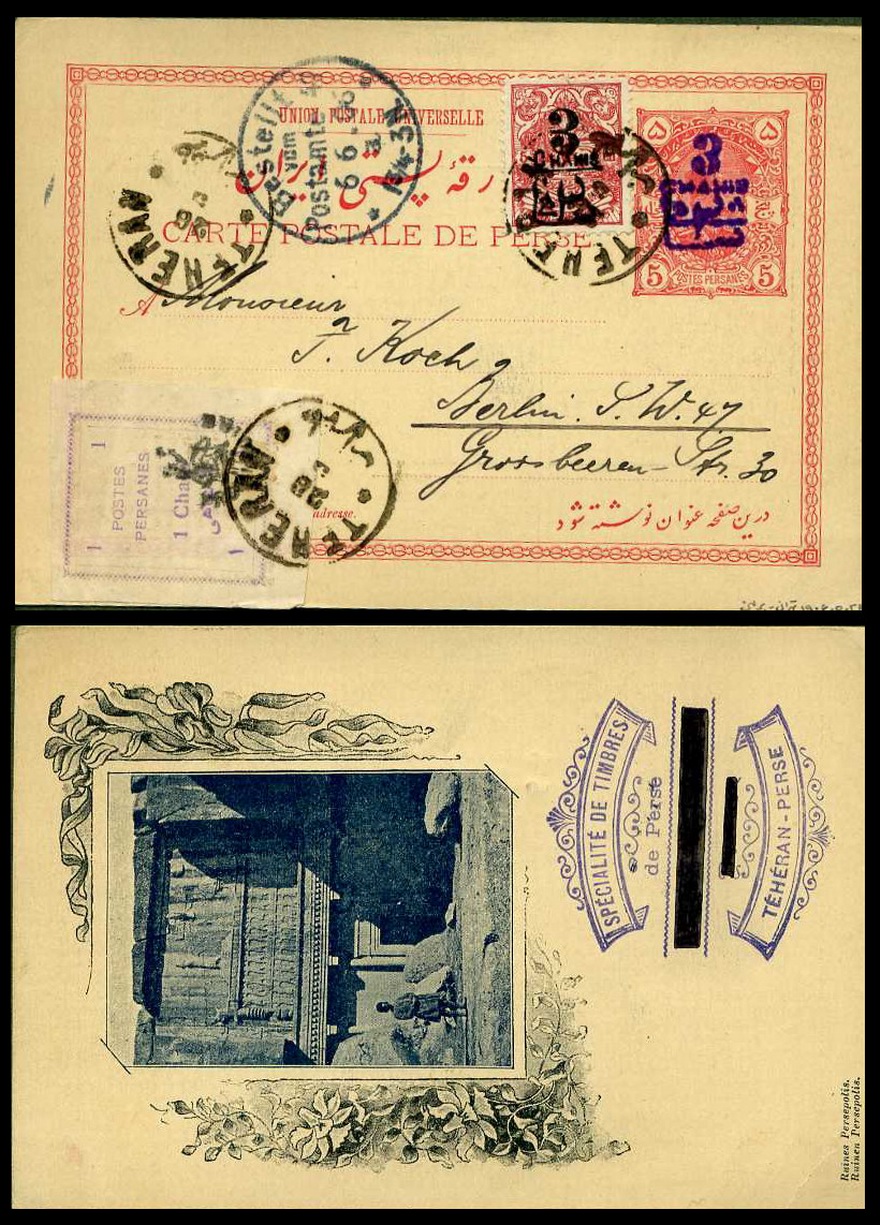 UNION POSTALE UNIVERSELLE
رقهٔ پستی ایران
CARTE POSTALE DE PERSE
A Monsieur
F. Koch
Berlin. S. W. 47
Grossbeeren-Str. 30
درین صفحه عنوان نوشته شود
adresse.
Bestellt
vom
Postamte
6 6
TEHERAN
TEHERAN
20
TEHERAN
3
CHAHIS
3
CHAHIS
۵ ۵
5 POSTES PERSANES 5
1 1
POSTES
PERSANES
1 Cha
1 ۱
SPÉCIALITÉ DE TIMBRES
de Perse
TÉHÉRAN-PERSE
Ruines Persepolis.
Ruinen Persepolis.